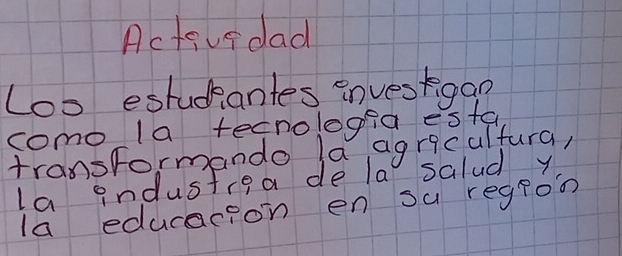 Actividad
Los estudiantes investigan
como la tecnologia esta
transformando la agricultura,
la industria de la salud y
la educación en su región